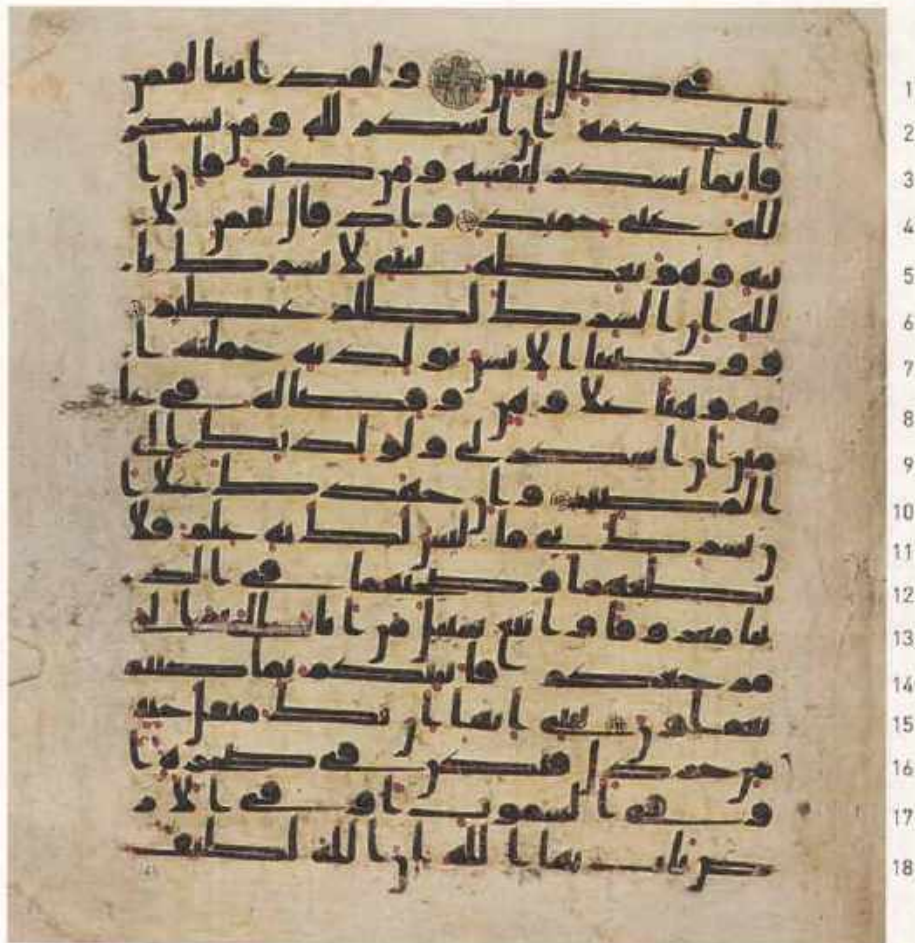 1 في ضلل مبين ولقد اتينا لقمن
2 الحكمه ان اشكر لله ومن يشكر
3 فانما يشكر لنفسه ومن كفر فان ا
4 لله غني حميد واذ قال لقمن لا
5 بنه وهو يعظه يبني لا تشرك با
6 لله ان الشرك لظلم عظيم
7 ووصينا الانسن بولديه حملته ا
8 مه وهنا علا وهن وفصاله في عا
9 مين ان اشكر لي ولولديك الي
10 المصير وان جهدك علا ا
11 ن تشرك بي ما ليس لك به علم فلا
12 تطعهما وصحبهما في الد
13 نيا معروفا واتبع سبيل من اناب الي ثم الي
14 مرجعكم فانبيكم بما كنتم
15 تعملون يبني انها ان تك مثقل حبه
16 من خردل فتكن في صخره ا
17 و في السموت او في الا
18 رض يات بها الله ان الله لطيف